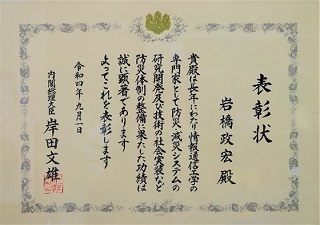 表彰状
岩橋政宏殿
貴殿は長年にわたり情報通信工学の
専門家として防災、減災システムの
研究開発及び技術の社会実装など
防災体制の整備に果たした功績は
誠に顕著であります
よってこれを表彰します
令和四年九月一日
内閣総理大臣 岸田文雄